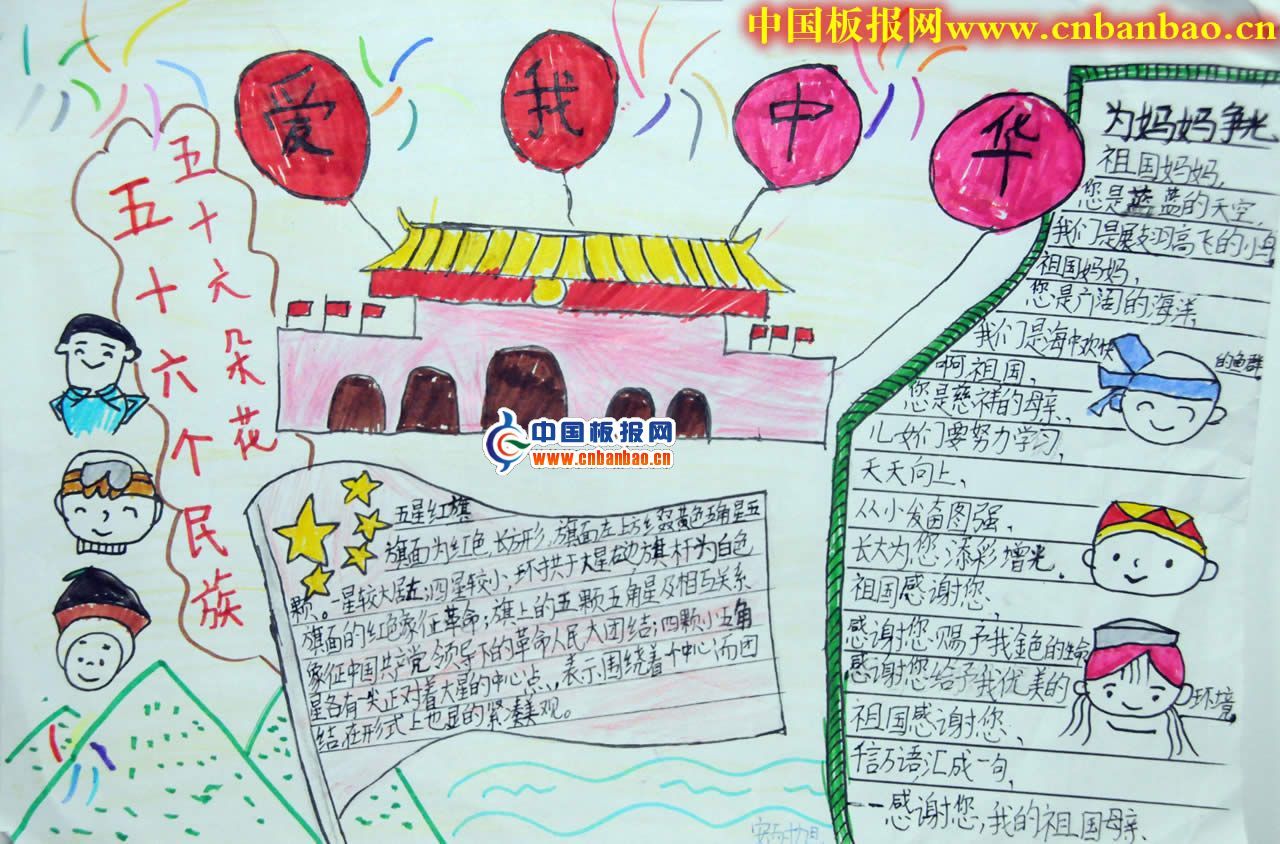 中国板报网www.cnbanbao.cn
爱我中华
五十六朵花
五十六个民族
中国板报网
www.cnbanbao.cn
五星红旗
旗面为红色,长方形,旗面左上方缀黄色五角星五
颗。一星较大居左,四星较小,环拱于大星右边旗杆为白色
旗面的红色象征革命;旗上的五颗五角星及相互关系
象征中国共产党领导下的革命人民大团结;四颗小五角
星各有尖正对着大星的中心点,表示围绕着一个中心而团
结在形式上也显的紧凑美观。
为妈妈争光
祖国妈妈,
您是蓝蓝的天空,
我们是展翅高飞的小鸟
祖国妈妈,
您是广阔的海洋,
我们是海中欢快的鱼群
啊祖国,
您是慈祥的母亲、
儿女们要努力学习,
天天向上、
从小发奋图强、
长大为您添彩增光.
祖国感谢您、
感谢您赐予我金色的生命
感谢您给予我优美的环境
祖国感谢您、
千言万语汇成一句,
——感谢您,我的祖国母亲、